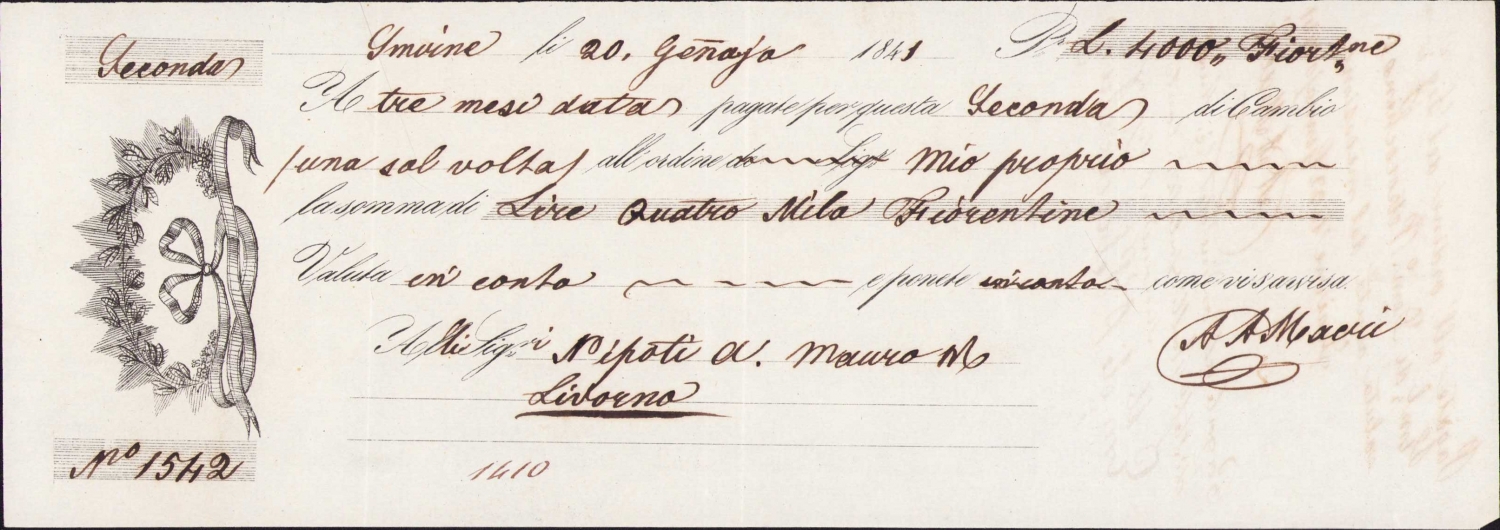 Seconda
Smirne li 20. Gen̄ajo 1841 Pr L. 4000,, Fiorne
A tre mesi data pagate per questa Seconda di Cambio
(una sol volta) all'ordine Mio proprio
la somma di Lire Quatro Mila Fiorentine
Valuta in conto e ponete in conto come vi s'avvisa.
Alli Sigri Nipoti d. Mauro
A A Macrì
Livorno
No 1542
1410